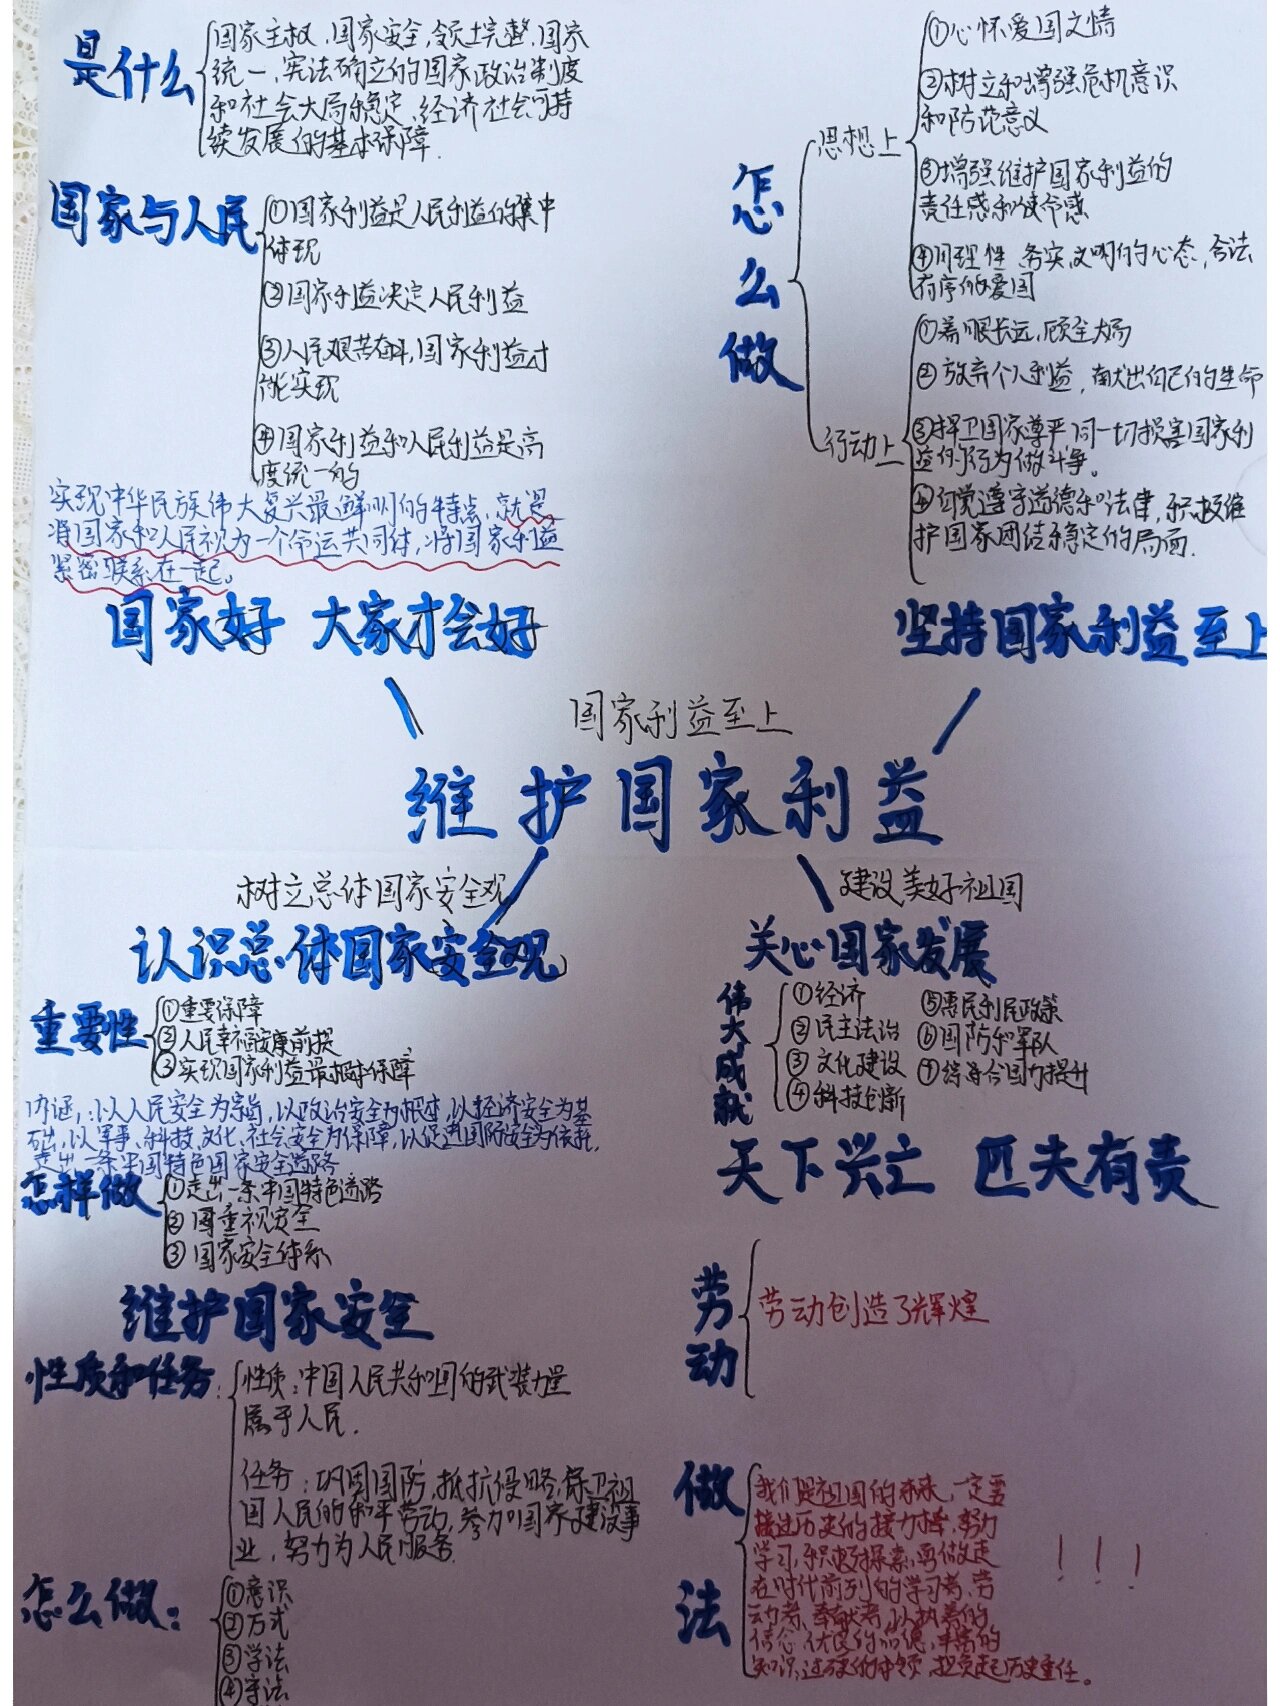 是什么
国家主权、国家安全,领土完整,国家
统一、宪法确立的国家政治制度
和社会大局稳定、经济社会可持
续发展的基本保障.
国家与人民
①国家利益是人民利益的集中
体现
②国家利益决定人民利益
③人民艰苦奋斗,国家利益才
能实现
④国家利益和人民利益是高
度统一的
实现中华民族伟大复兴最鲜明的特点,就是
将国家和人民视为一个命运共同体,将国家利益
紧密联系在一起。
国家好 大家才会好
怎么做
思想上
①心怀爱国之情
②树立和增强危机意识
和防范意义
③增强维护国家利益的
责任感和使命感
④用理性、务实,文明的心态,合法
有序的爱国
行动上
①着眼长远,顾全大局
②放弃个人利益,献出自己的生命
③捍卫国家尊严,同一切损害国家利
益的行为做斗争。
④自觉遵守道德和法律,积极维
护国家团结稳定的局面.
坚持国家利益至上
国家利益至上
维护国家利益
树立总体国家安全观
认识总体国家安全观
重要性
①重要保障
②人民幸福安康前提
③实现国家利益最根本保障
内涵:以人民安全为宗旨,以政治安全为根本,以经济安全为基
础,以军事、科技、文化、社会安全为保障,以促进国际安全为依托,
走出一条中国特色国家安全道路
怎样做
①走出一条中国特色道路
②国重视安全
③国家安全体系
维护国家安全
性质和任务:
性质:中国人民共和国的武装力量
属于人民.
任务:巩固国防,抵抗侵略,保卫祖
国人民的和平劳动,参加国家建设事
业,努力为人民服务.
怎么做:
①意识
②方式
③学法
④守法
建设美好祖国
关心国家发展
伟大成就
①经济
②民主法治
③文化建设
④科技创新
⑤惠民利民政策
⑥国防和军队
⑦综合国力提升
天下兴亡 匹夫有责
劳动
劳动创造了辉煌
做法
我们是祖国的未来,一定要
接过历史的接力棒,努力
学习,积极探索,勇做走
在时代前列的学习者、劳
动者、奉献者,以执着的
信念、优良的品德,丰富的
知识,过硬的本领,担负起历史重任。
!!!